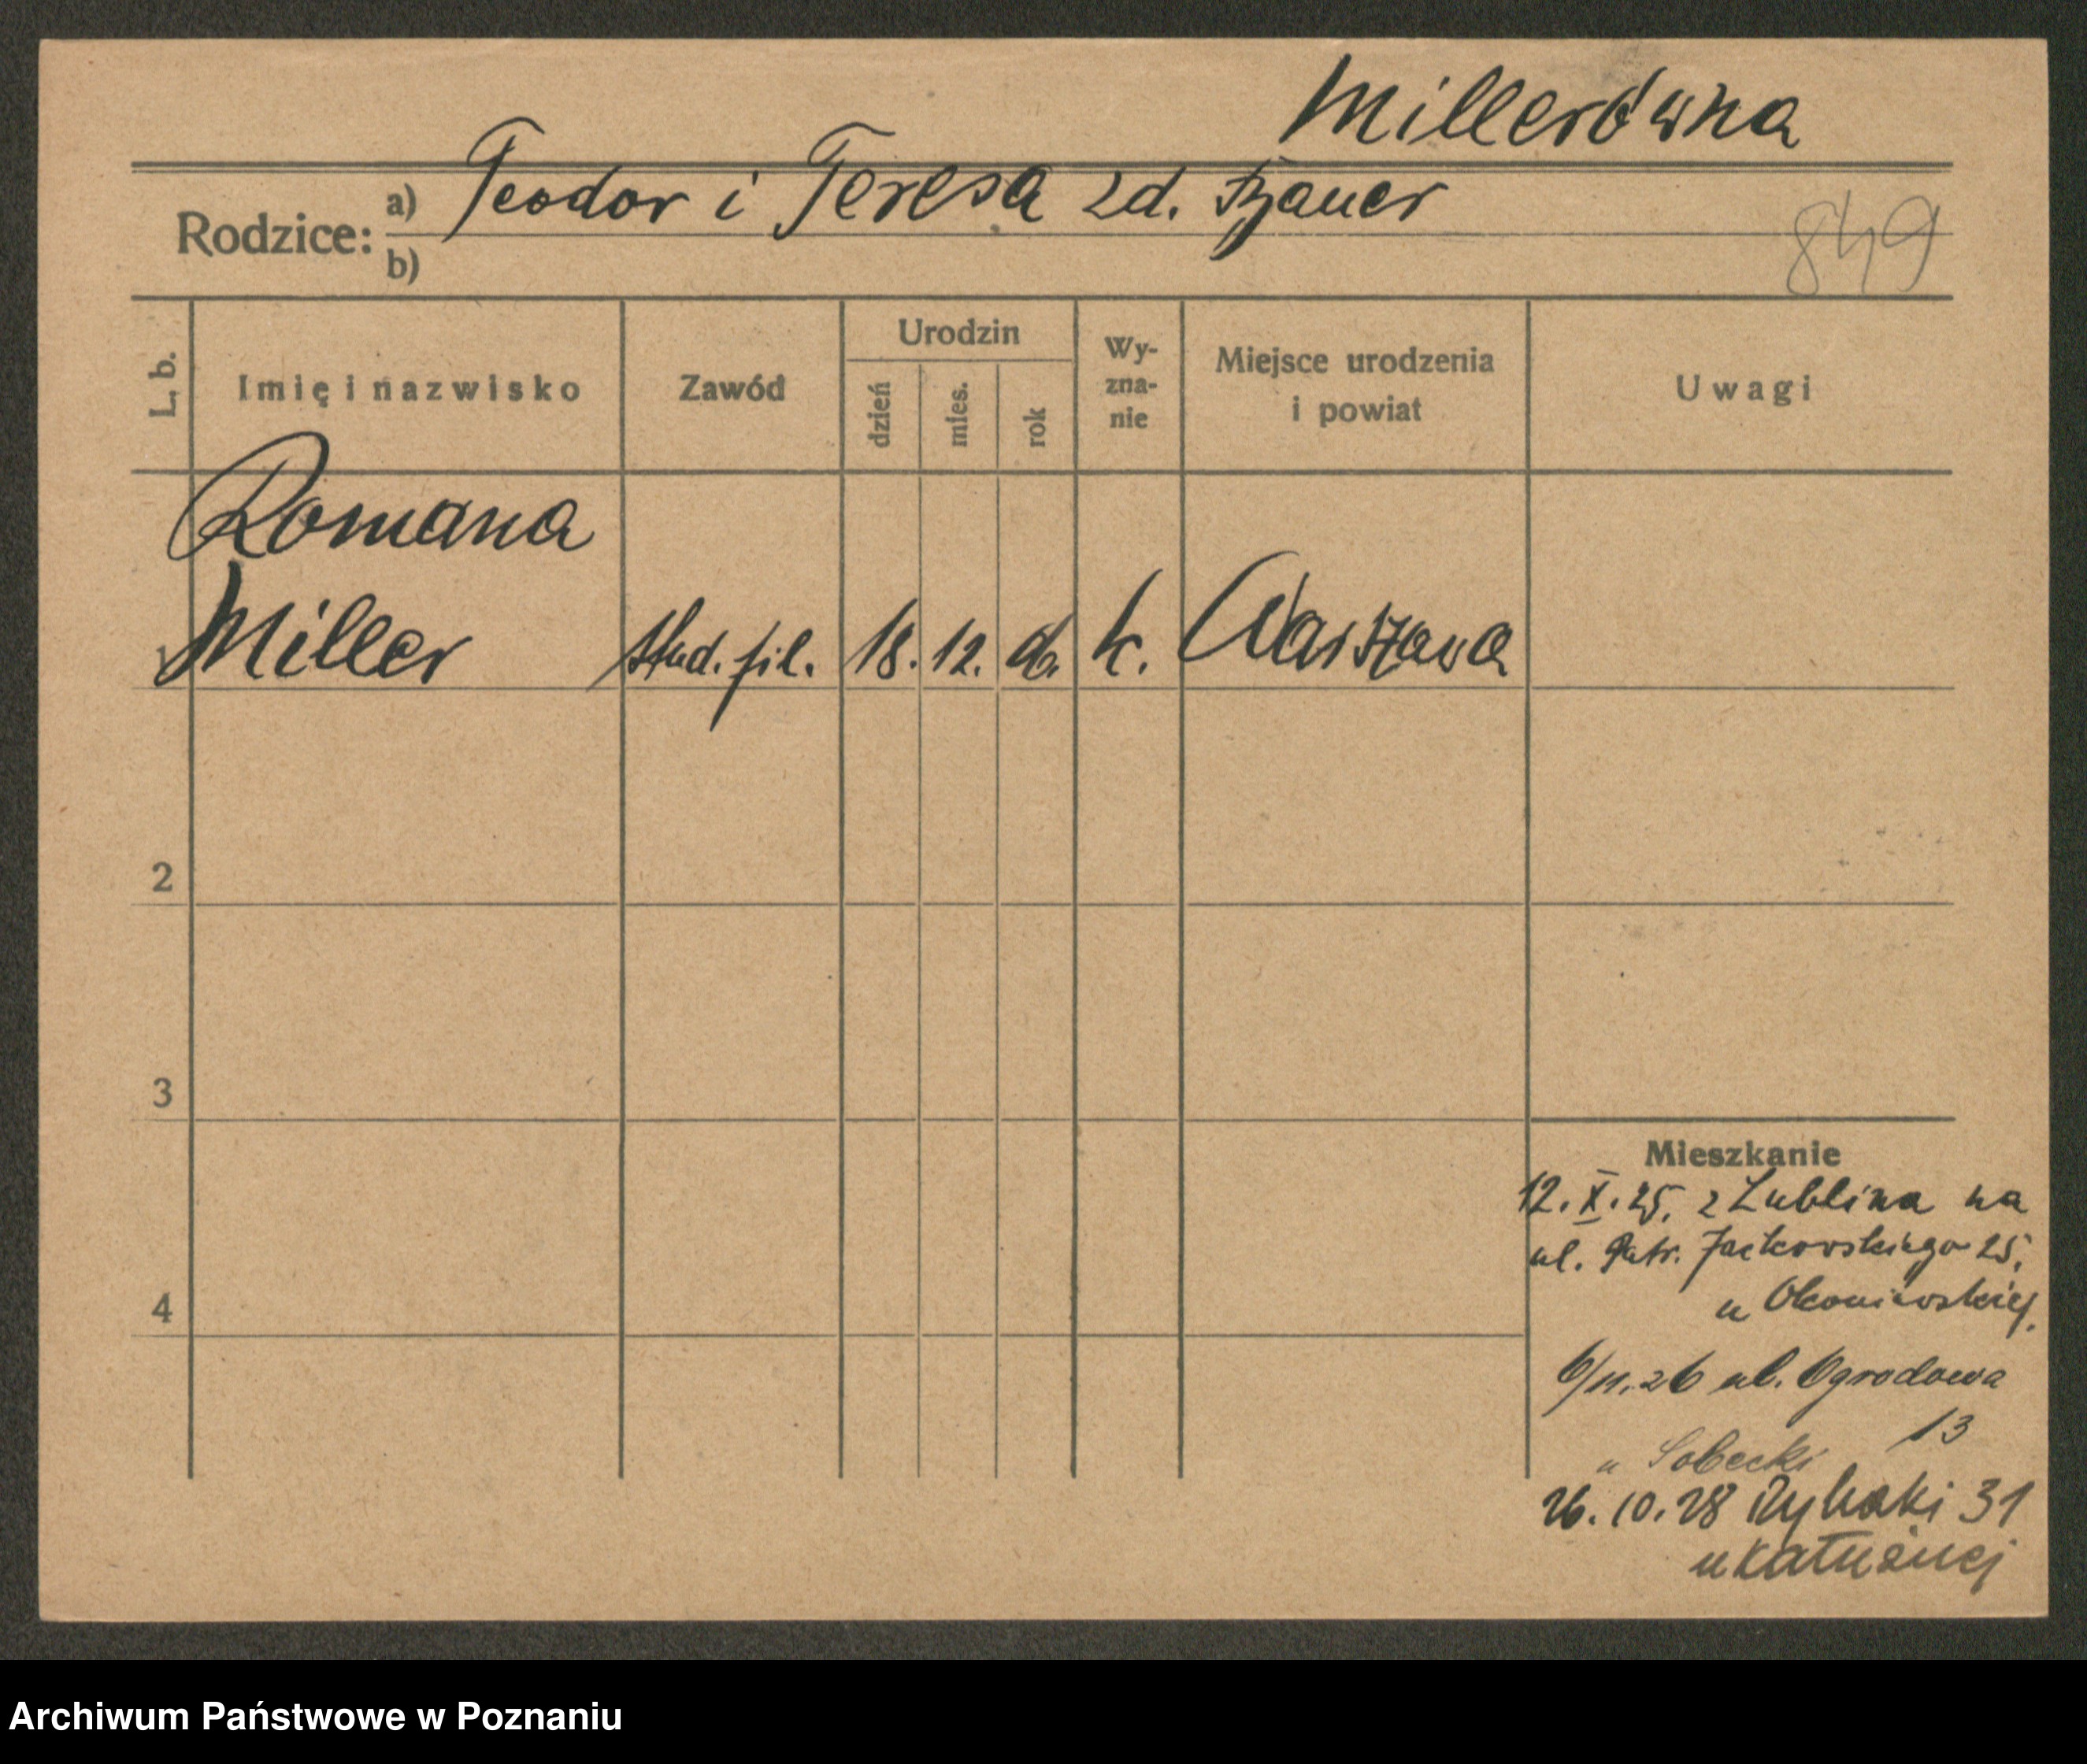 Millerówna
Rodzice: a) Teodor i Teresa zd. Bauer
b)
849
L. b.
Imię i nazwisko
Zawód
Urodzin
dzień
mies.
rok
Wy-
zna-
nie
Miejsce urodzenia
i powiat
Uwagi
Romana
1 Miller stud. fil. 18. 12. k. Warszawa
2
3
4
Mieszkanie
12. X. 25. z Lublina na
ul. Patr. Jackowskiego 25,
u
6/11.26 ul. Ogrodowa
13
" Sobecki
26. 10. 28 Rybaki 31
u
Archiwum Państwowe w Poznaniu